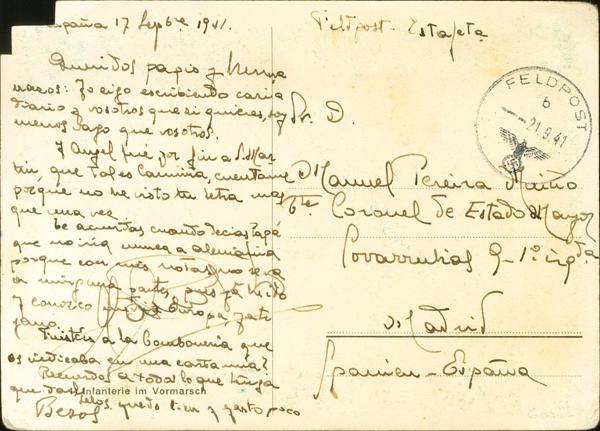 España 17 Sepbre 1941.
Queridos papis y herma
nazos: Yo sigo escribiendo cada
diario y vosotros que si quieres, soy
menos vago que vosotros.
Y Angel fué por fin a S. Mar
tin, que tal es Camina, cuentame
porque no he visto tu letra mas
que una vez
Te acuerdas cuando decias papá
que no iria nunca a alemania
porque con mis notas no
a ninguna parte, pues ya he ido
y conozco Europa, zate
jano.
Fuisteis a la Comboneria que
os indicaba en una carta mia?
Recuerdos a todos lo que tenga
que darlos, quedo bien y gasto poco
Besos
Infanterie im Vormarsch
Feldpost - Estafeta
FELDPOST
b
21.9.41
Sr. D.
Manuel Pereira Muiño
Tte. Coronel de Estado Mayor
Covarrubias 9 - 1º izqda
Madrid
Spanien - España